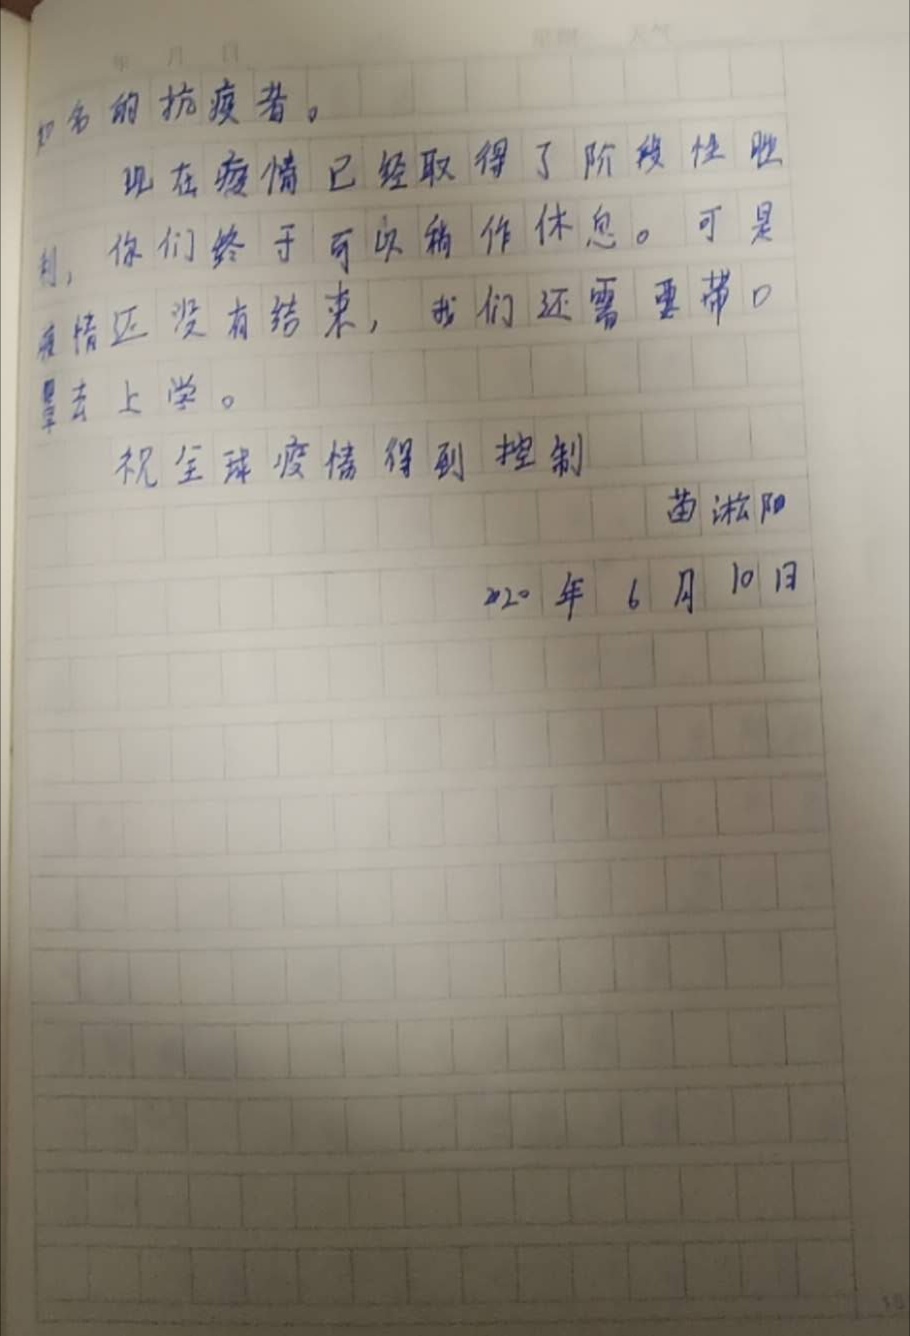 知名的抗疫者。
现在疫情已经取得了阶段性胜
利，你们终于可以稍作休息。可是
疫情还没有结束，我们还需要带口
罩去上学。
祝全球疫情得到控制
苗淞阳
2020年6月10日